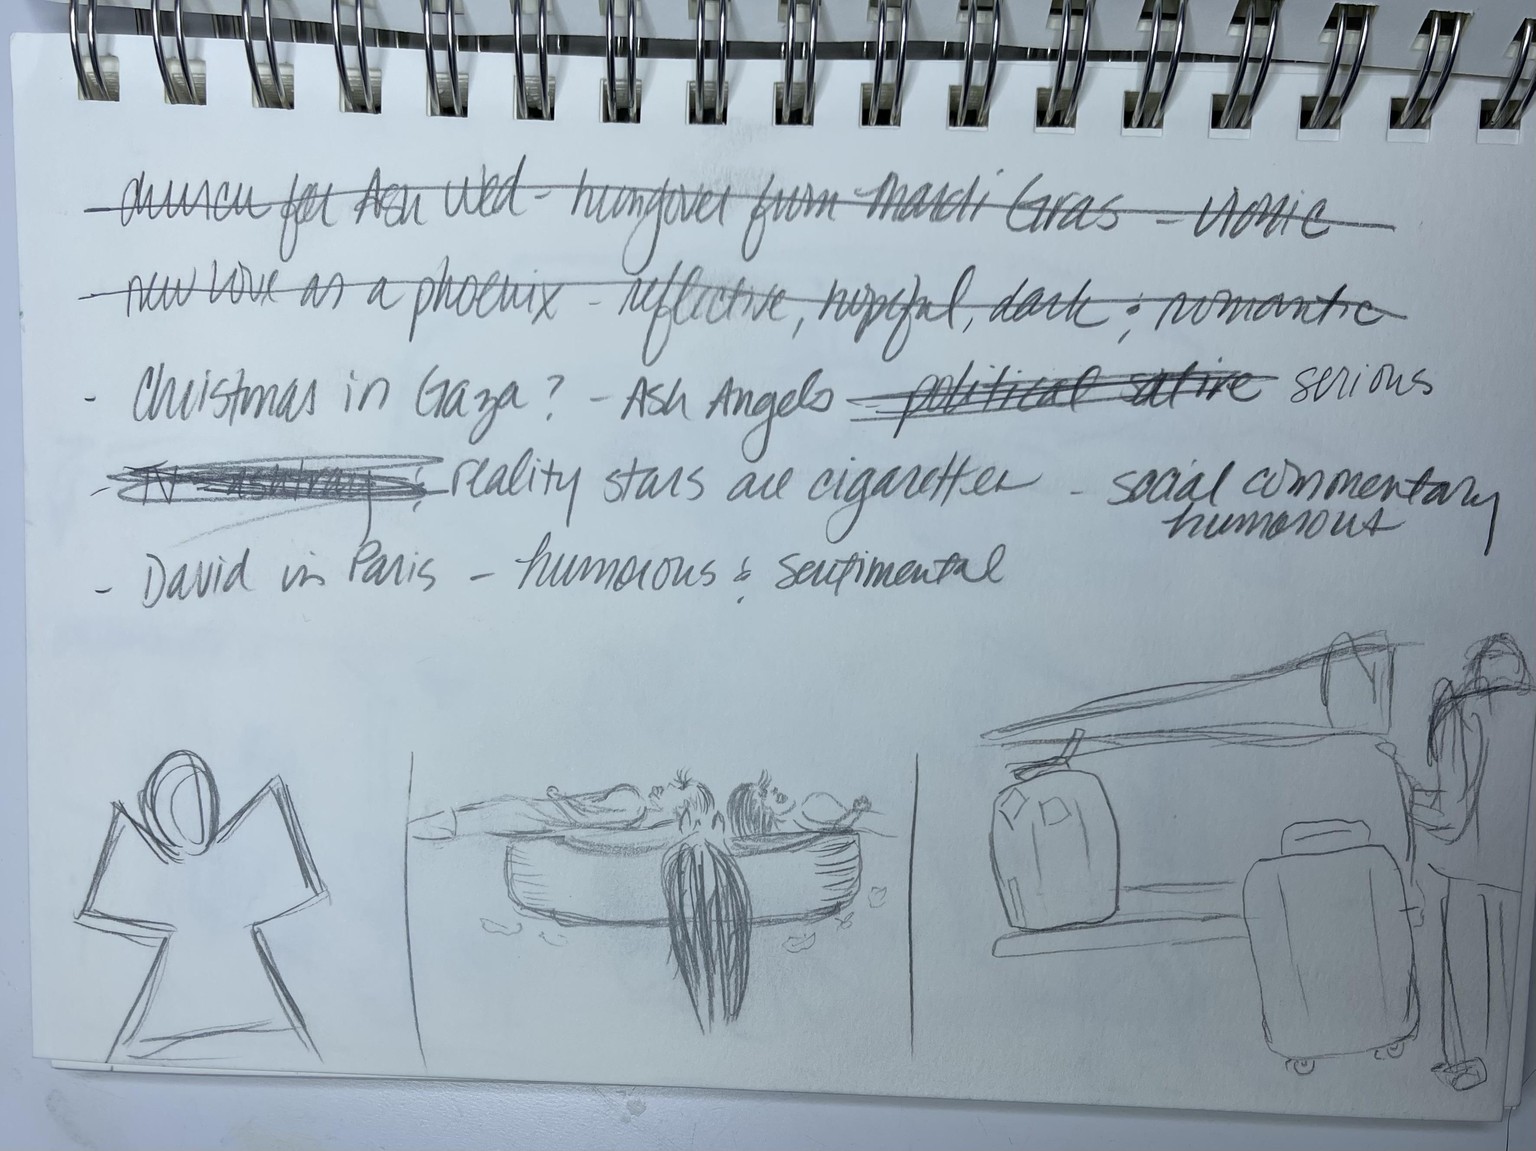 - church for Ash Wed - hungover from Mardi Gras - ironic
- new love as a phoenix - reflective, hopeful, dark & romantic
- Christmas in Gaza? - Ash Angels - political satire serious
- TV ashtray & reality stars are cigarettes - social commentary
humorous
- David in Paris - humorous & sentimental